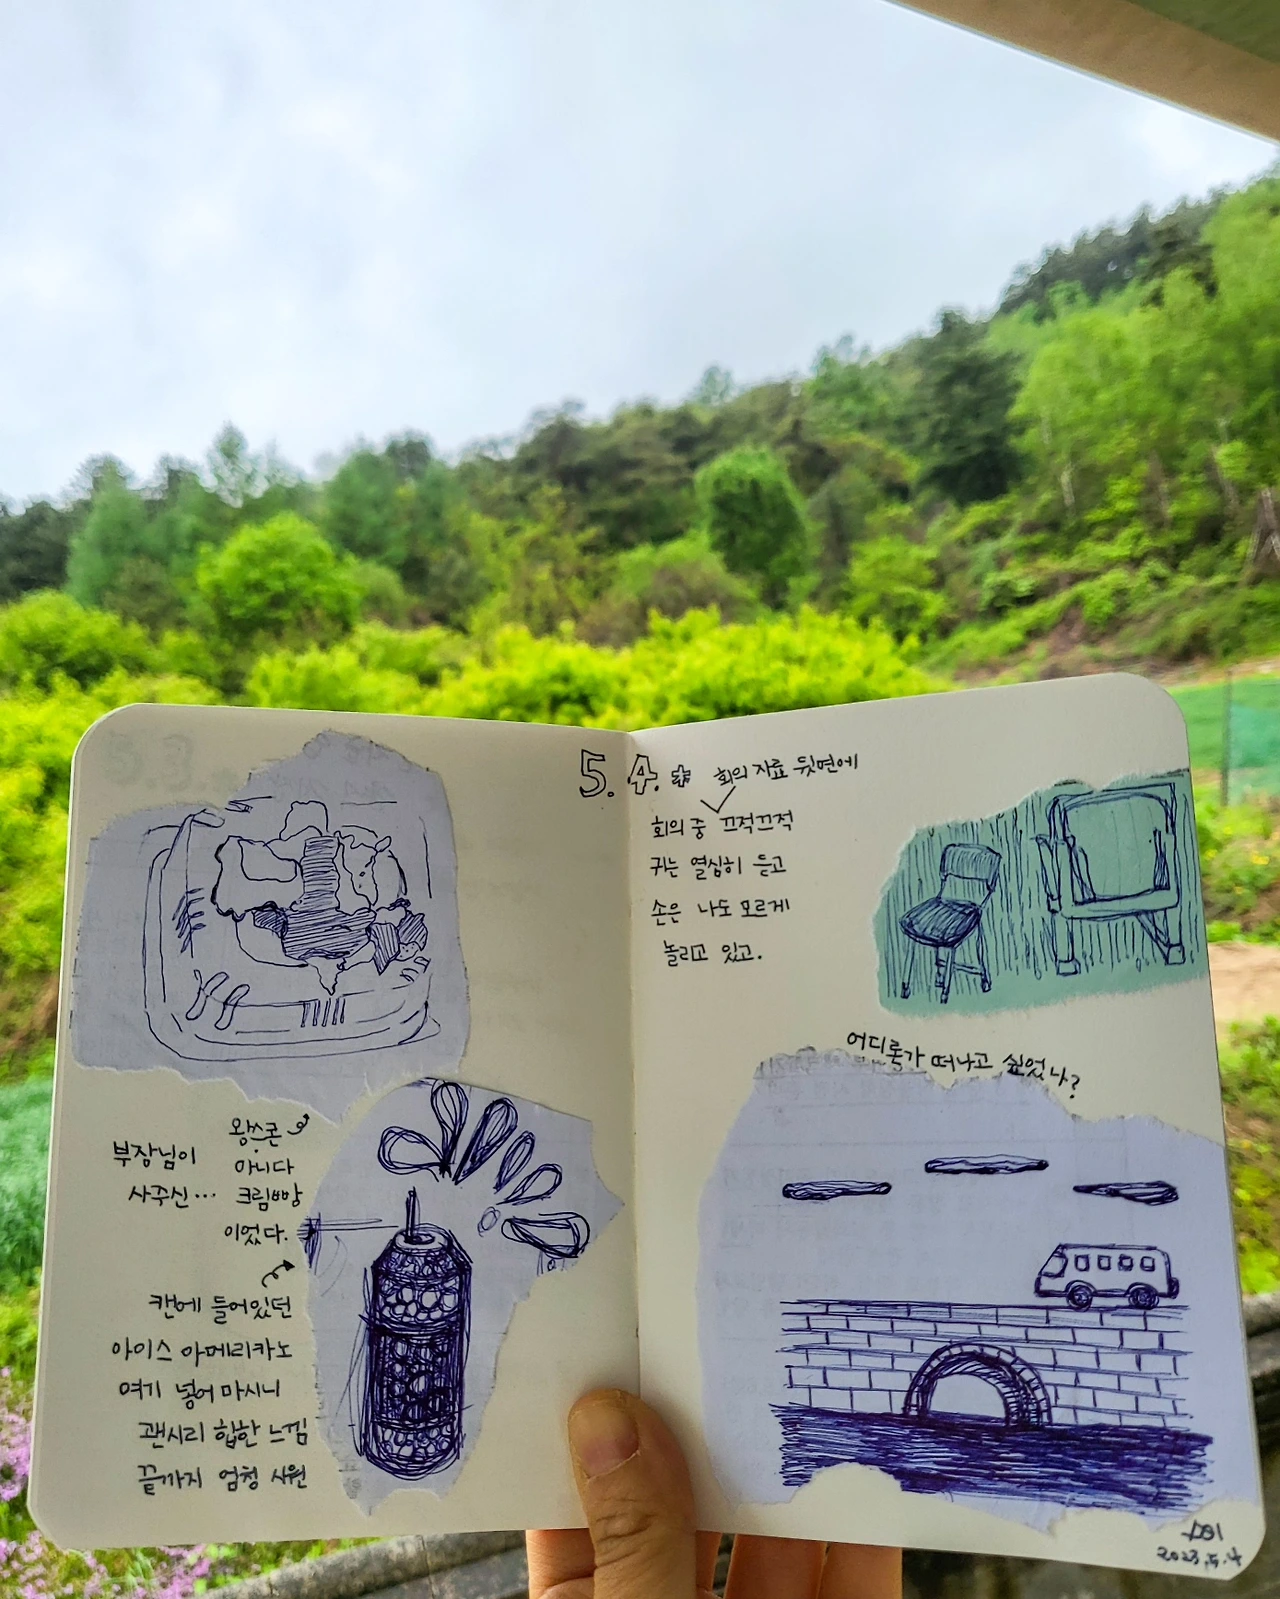 5.4.*
회의 자료 뒷면에
회의 중 끄적끄적
귀는 열심히 듣고
손은 나도 모르게
놀리고 있고.
어디론가 떠나고 싶었나?
부장님이
사주신...
왕쓰콘
아니다
크림빵
이었다.
캔에 들어있던
아이스 아메리카노
여기 넣어 마시니
괜시리 힙한 느낌
끝까지 엄청 시원
2023.5.4